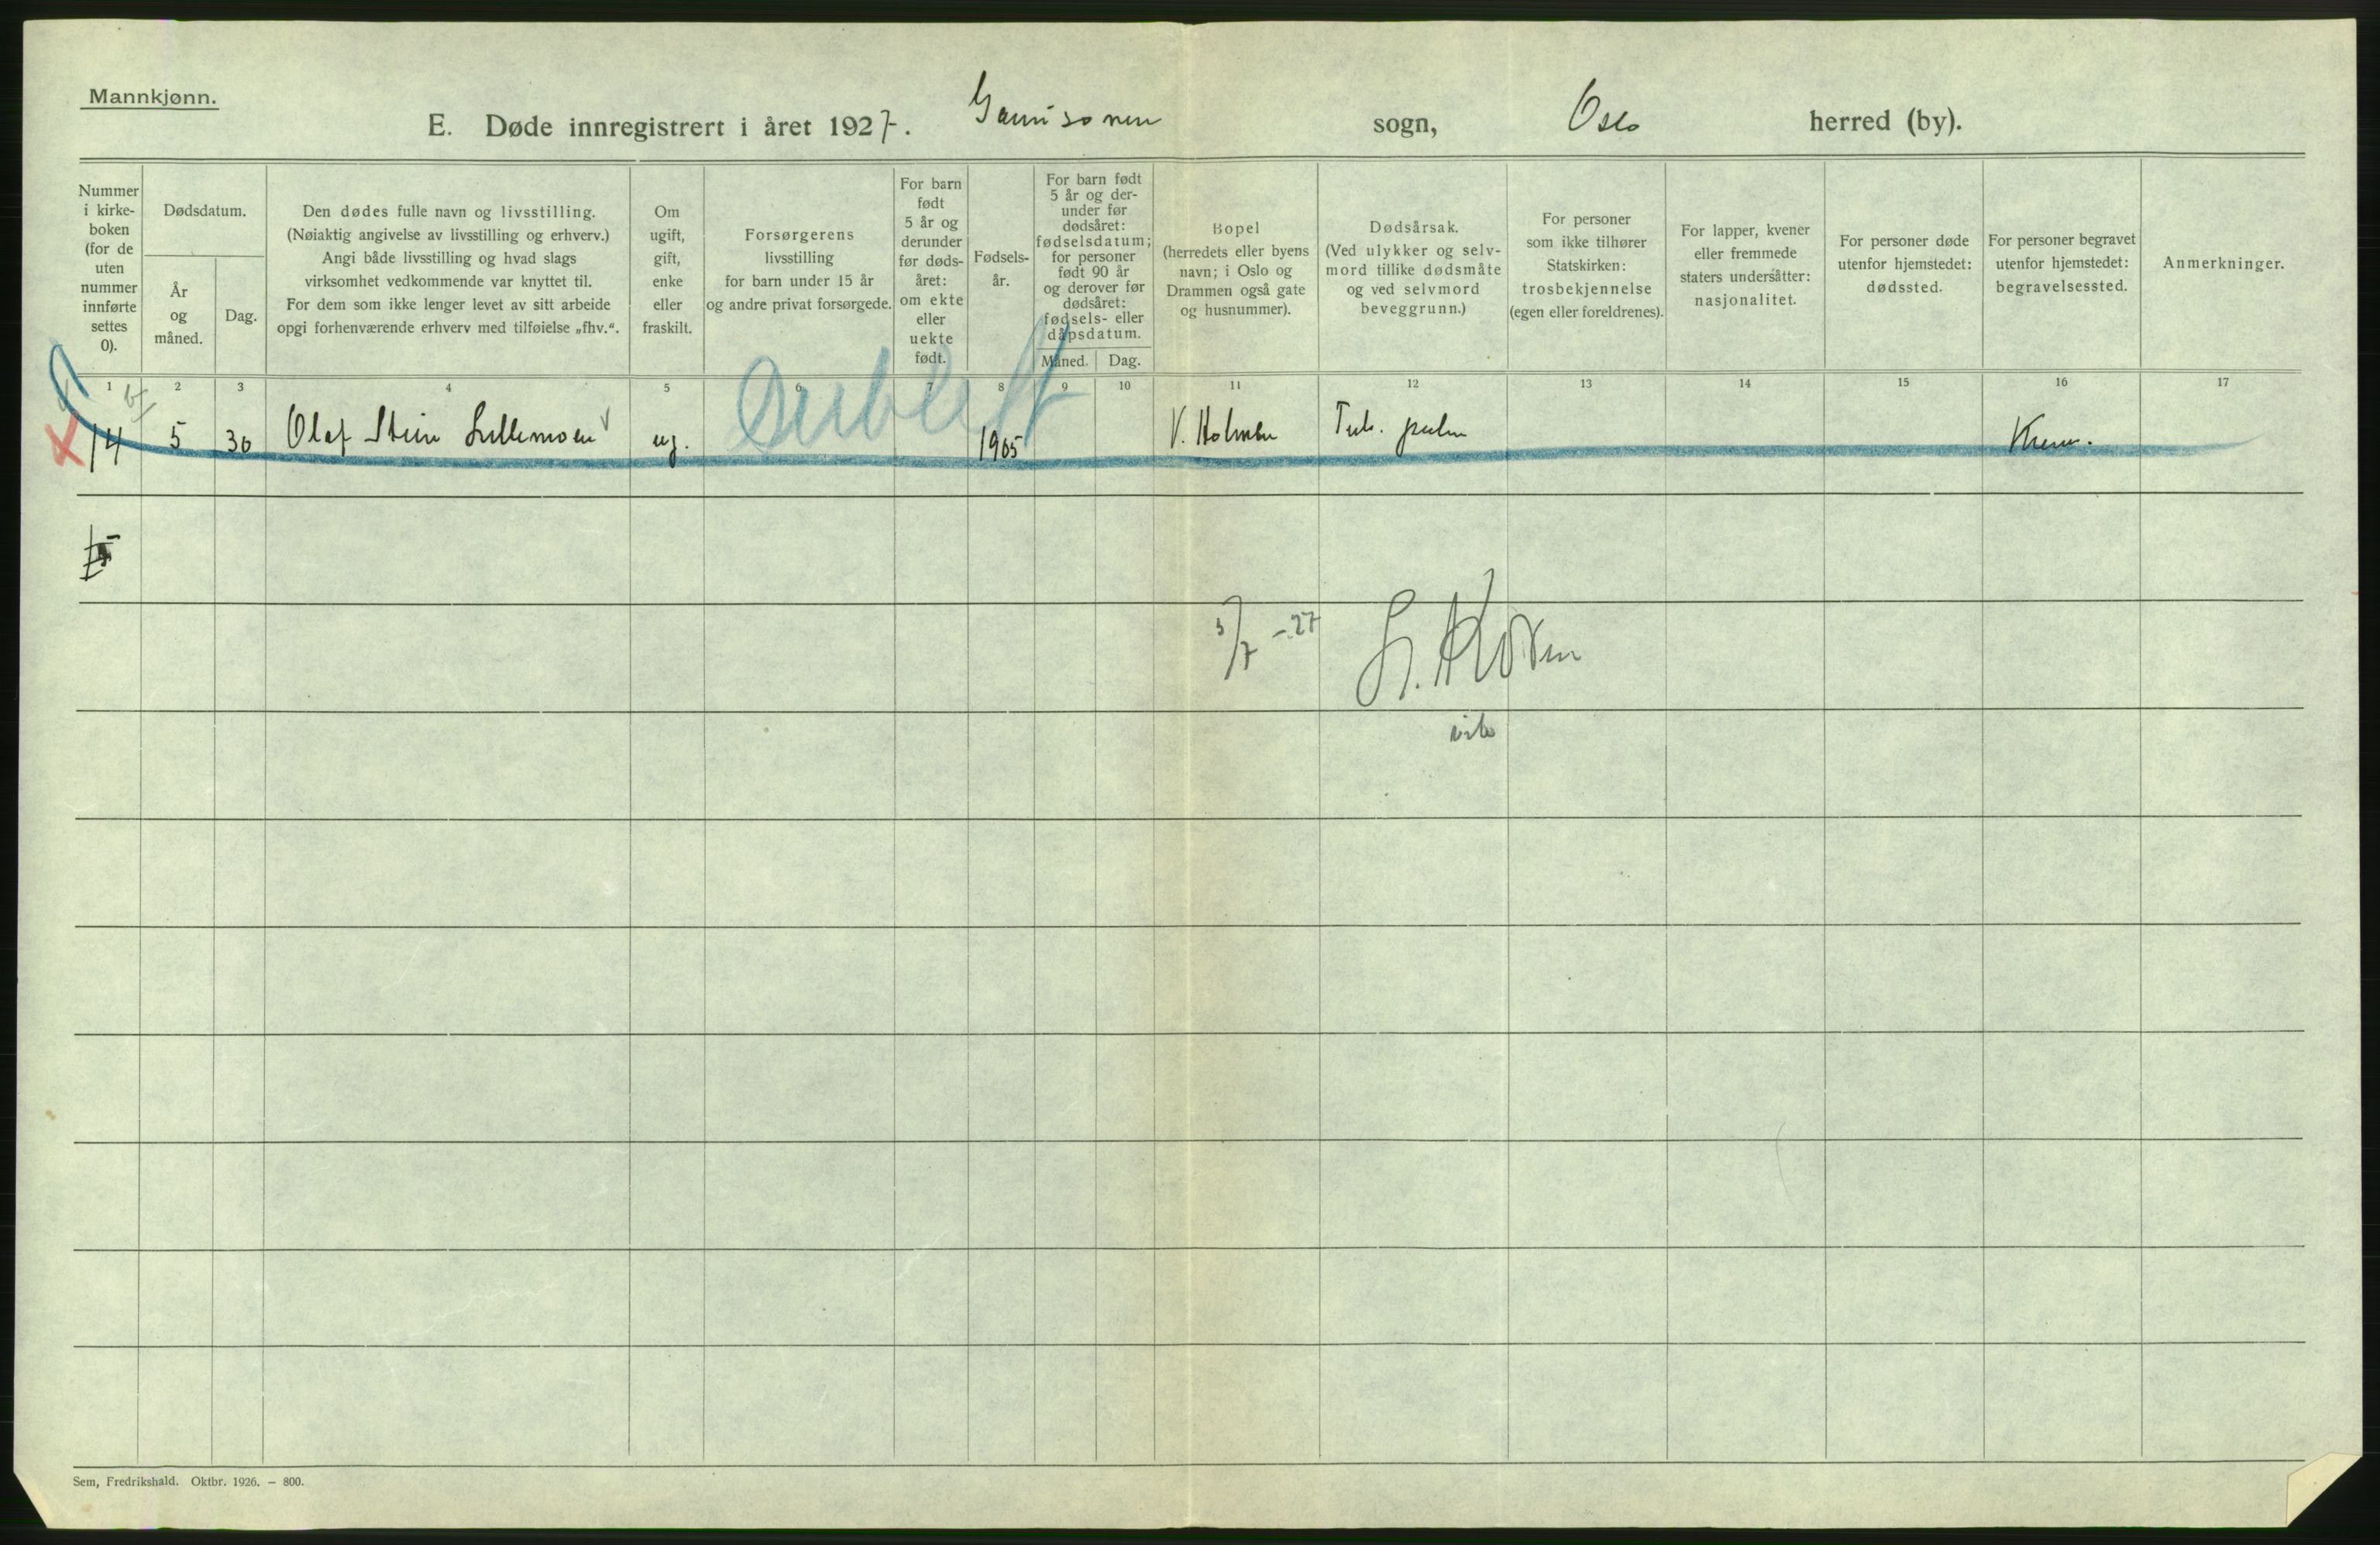 Mannkjønn.
E. Døde innregistrert i året 1927. Garnisonen sogn, Oslo herred (by).
Nummer
i kirke-
boken
(for de
uten
nummer
innførte
settes
0).
Dødsdatum.
År
og
måned.
Dag.
Den dødes fulle navn og livsstilling.
(Nøiaktig angivelse av livsstilling og erhverv.)
Angi både livsstilling og hvad slags
virksomhet vedkommende var knyttet til.
For dem som ikke lenger levet av sitt arbeide
opgi forhenværende erhverv med tilføielse „fhv.“.
Om
ugift,
gift,
enke
eller
fraskilt.
Forsørgerens
livsstilling
for barn under 15 år
og andre privat forsørgede.
For barn
født
5 år og
derunder
før døds-
året:
om ekte
eller
uekte
født.
Fødsels-
år.
For barn født
5 år og der-
under før
dødsåret:
fødselsdatum;
for personer
født 90 år
og derover før
dødsåret:
fødsels- eller
dåpsdatum.
Måned. Dag.
Bopel
(herredets eller byens
navn; i Oslo og
Drammen også gate
og husnummer).
Dødsårsak.
(Ved ulykker og selv-
mord tillike dødsmåte
og ved selvmord
beveggrunn.)
For personer
som ikke tilhører
Statskirken:
trosbekjennelse
(egen eller foreldrenes).
For lapper, kvener
eller fremmede
staters undersåtter:
nasjonalitet.
For personer døde
utenfor hjemstedet:
dødssted.
For personer begravet
utenfor hjemstedet:
begravelsessted.
Anmerkninger.
1 2 3 4 5 6 7 8 9 10 11 12 13 14 15 16 17
Dublett
14 5 30 Olaf Stein Lillemoen ug. 1905 V. Holmen Tub. pulm Krem.
15
5/7 -27
Sem, Fredrikshald. Oktbr. 1926. — 800.